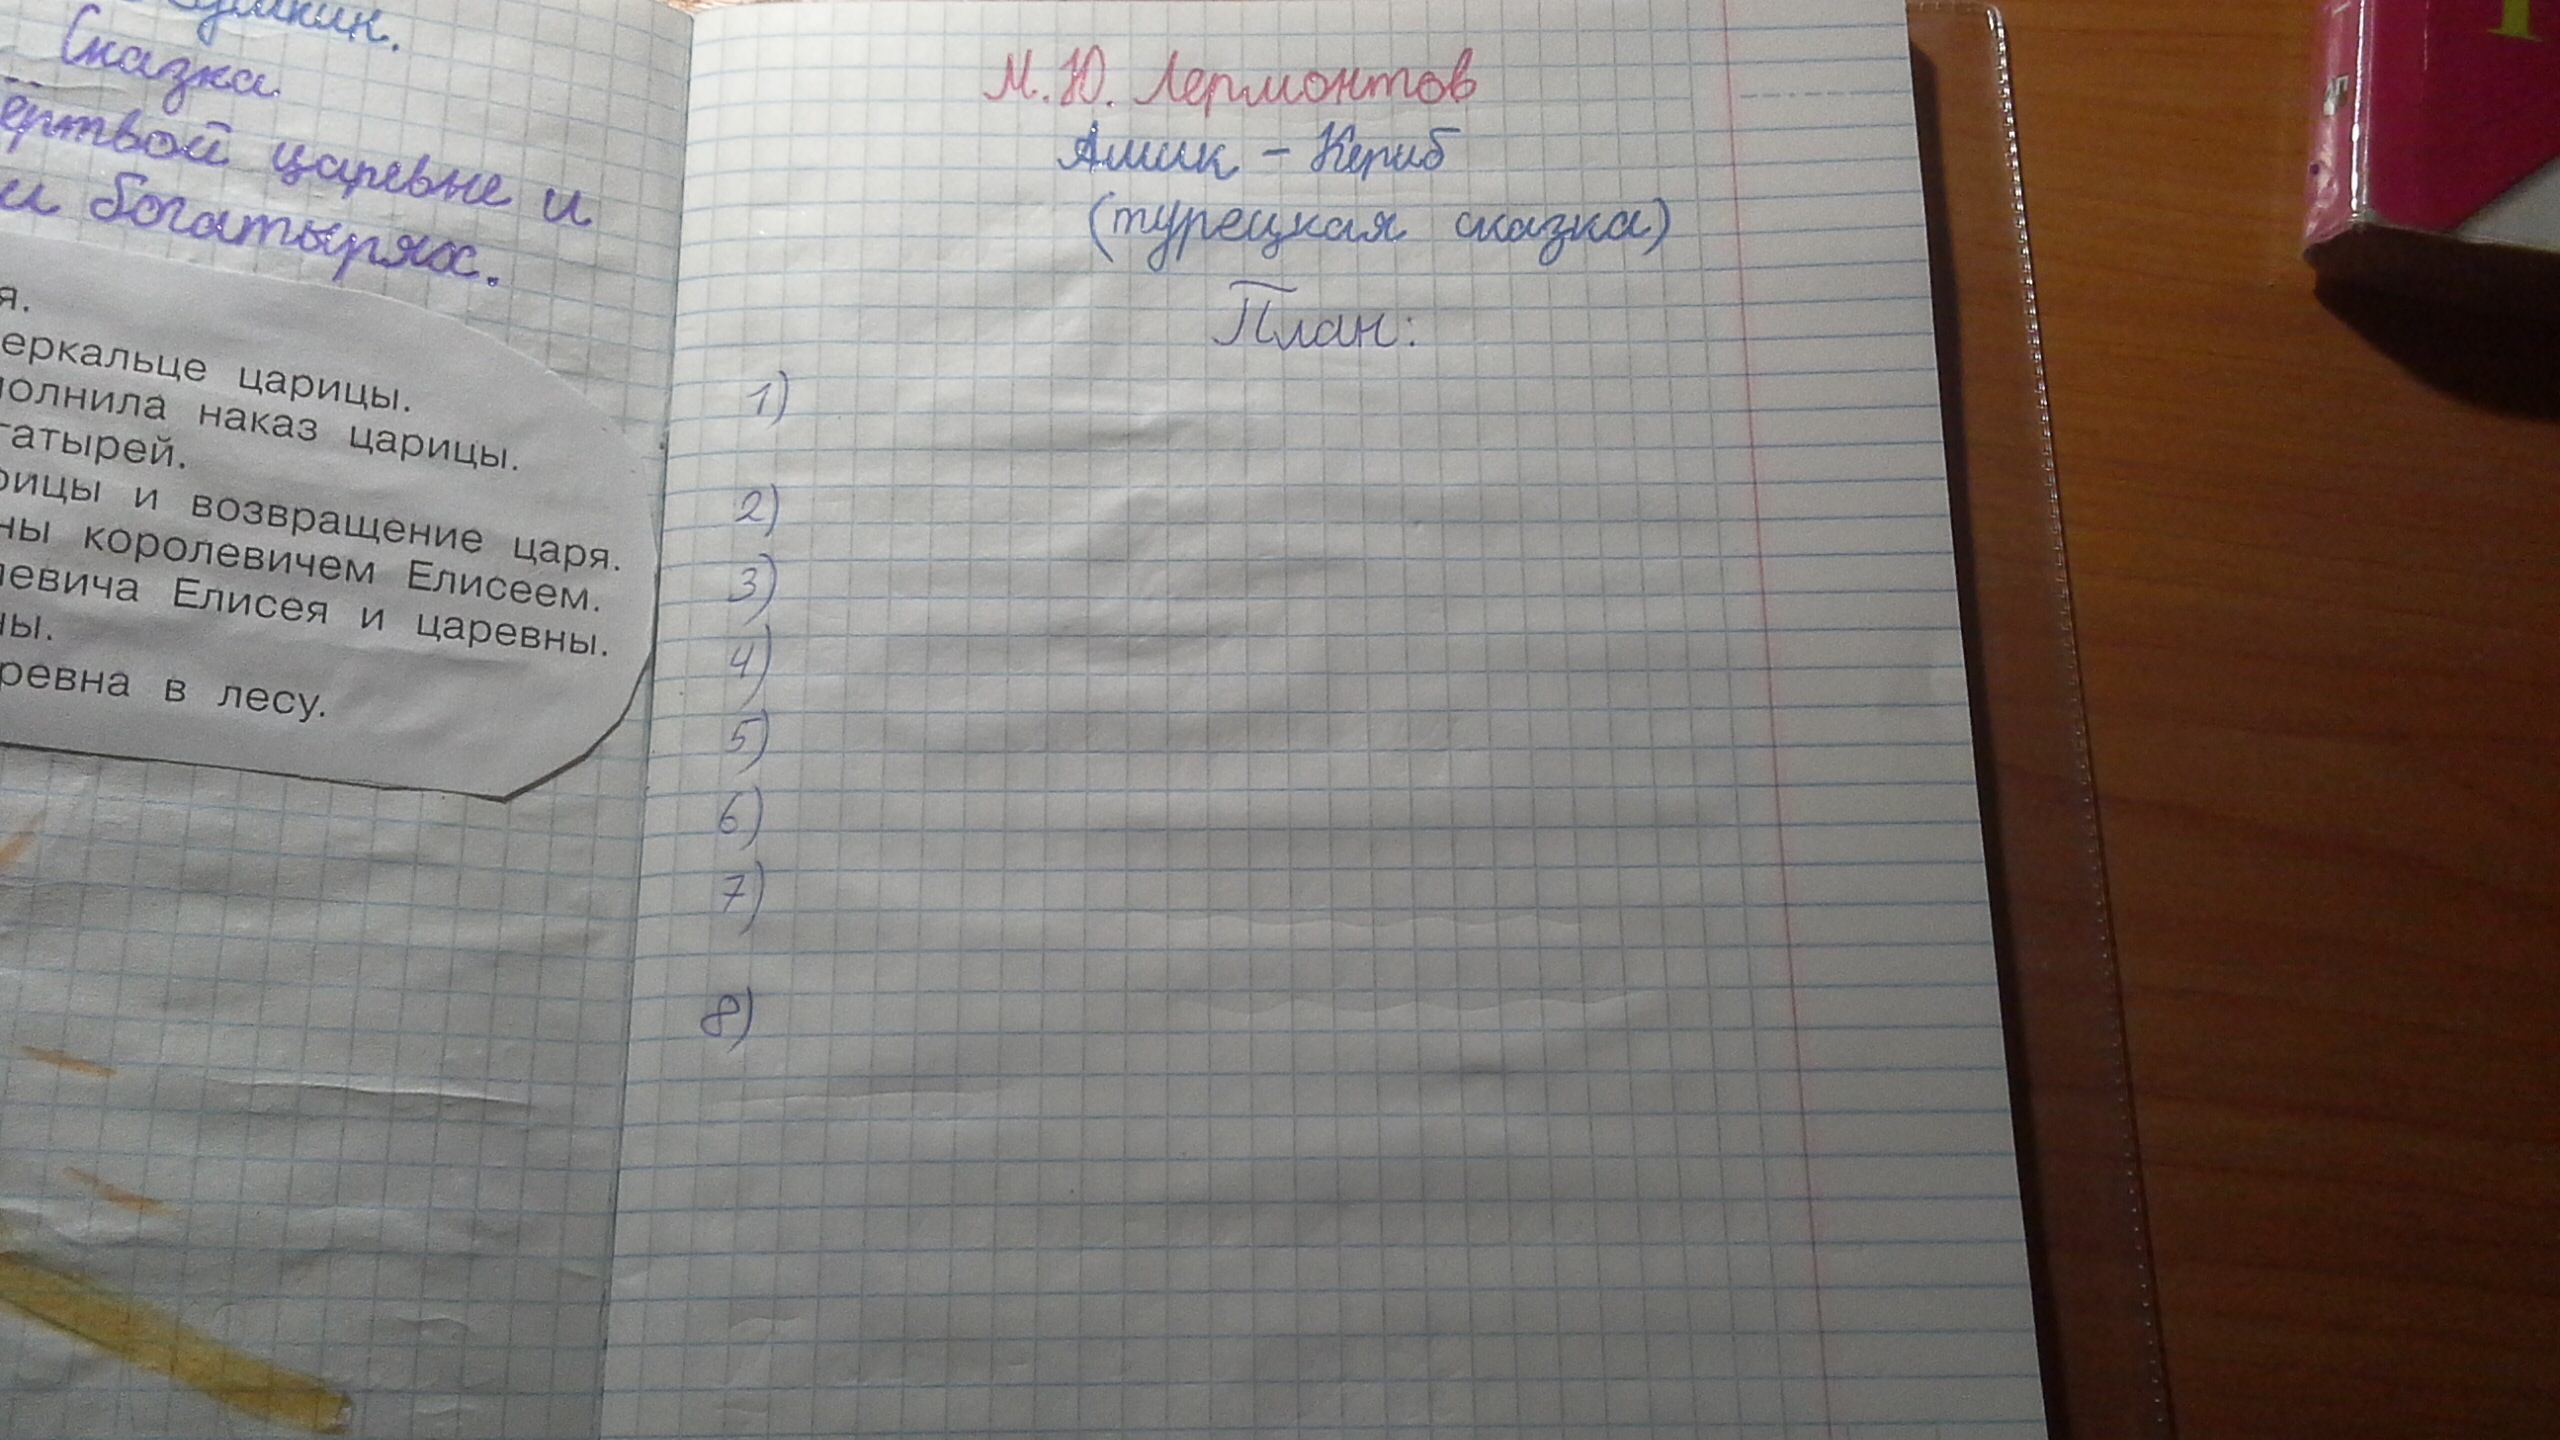 Сказка
ёртвой царевне и
и богатырях.
я.
еркальце царицы.
полнила наказ царицы.
гатырей.
рицы и возвращение царя.
ны королевичем Елисеем.
левича Елисея и царевны.
ны.
ревна в лесу.
М.Ю. Лермонтов
Ашик - Кериб
(турецкая сказка)
План:
1)
2)
3)
4)
5)
6)
7)
8)